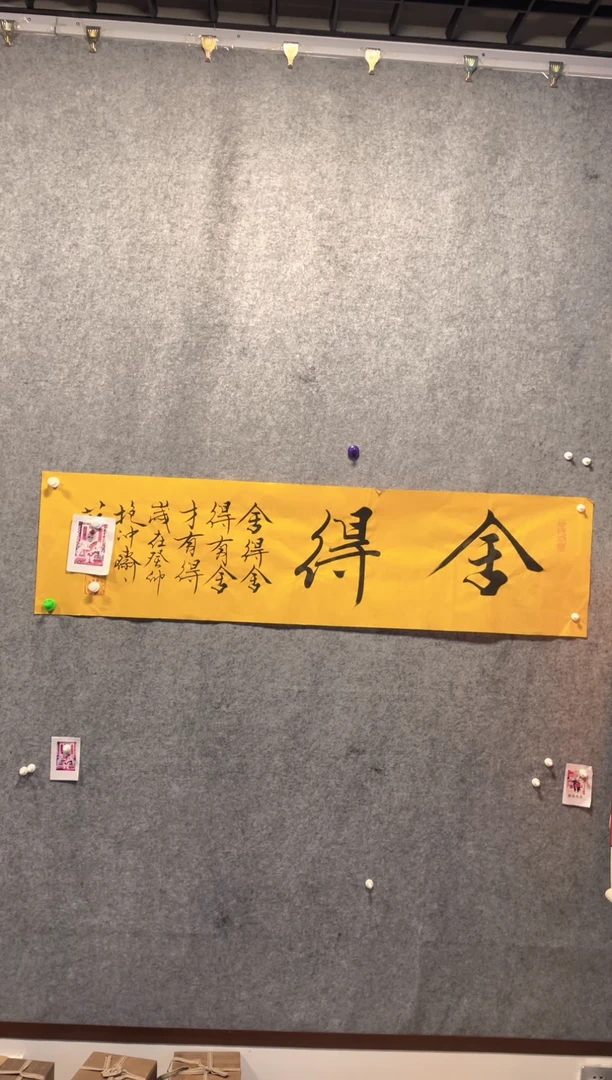 舍得
舍得舍
得有舍
才有得
歲在癸卯